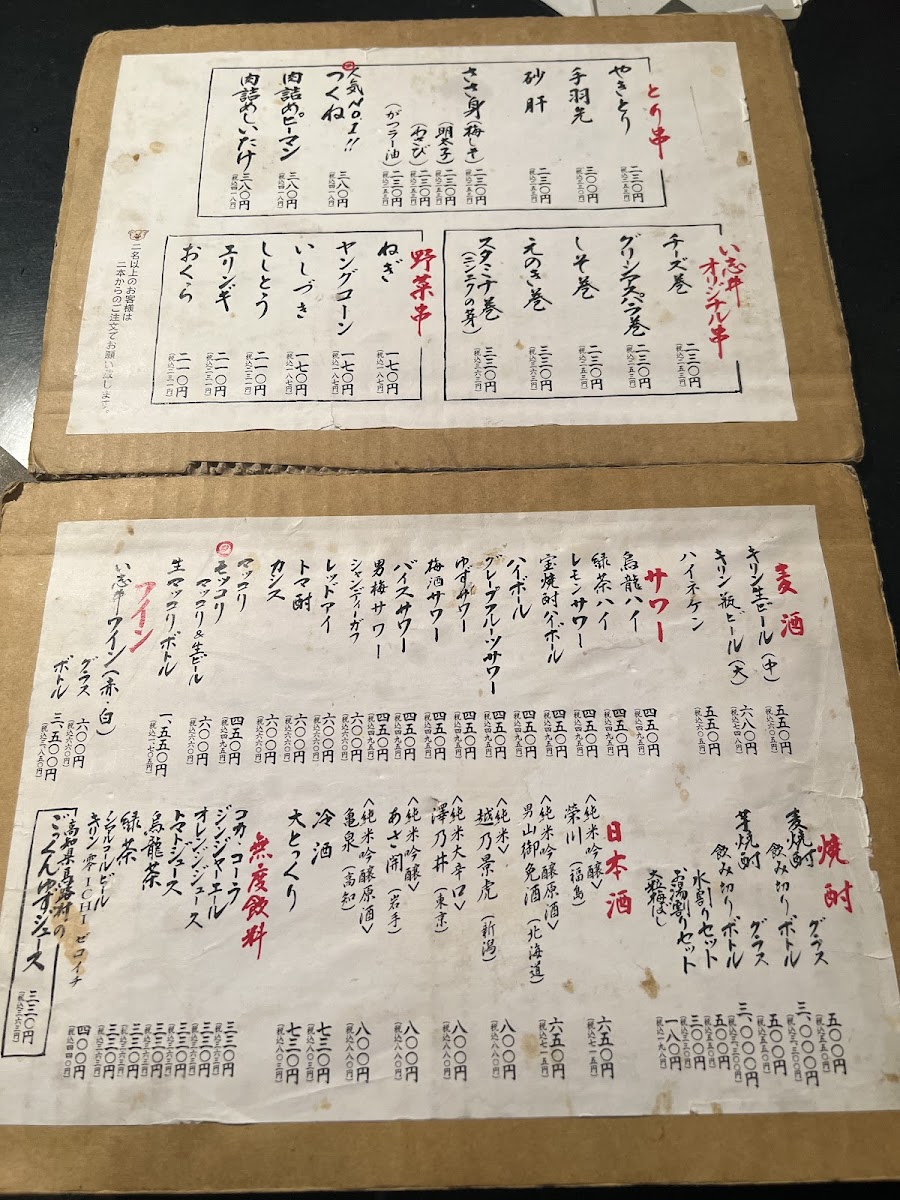 とり串
やきとり 二三〇円
(税込二五三円)
手羽先 三〇〇円
(税込三三〇円)
砂肝 二三〇円
(税込二五三円)
ささ身(梅しそ) 二三〇円
(税込二五三円)
(明太子) 二三〇円
(税込二五三円)
(わさび) 二三〇円
(税込二五三円)
(がつラー油) 二三〇円
(税込二五三円)
人気No.1!!
つくね 三八〇円
(税込四一八円)
肉詰めピーマン 三八〇円
(税込四一八円)
肉詰めしいたけ 三八〇円
(税込四一八円)
い志井
オリジナル串
チーズ巻 二三〇円
(税込二五三円)
グリーンアスパラ巻 二三〇円
(税込二五三円)
しそ巻 二三〇円
(税込二五三円)
えのき巻 三三〇円
スタミナ巻 三三〇円
(ニンニクの芽) (税込三六三円)
野菜串
ねぎ 一七〇円
(税込一八七円)
ヤングコーン 一七〇円
(税込一八七円)
いしづき 一七〇円
(税込一八七円)
ししとう 二一〇円
(税込二三一円)
エリンギ 二一〇円
(税込二三一円)
おくら 二一〇円
(税込二三一円)
二名以上のお客様は
二本からのご注文でお願い致します。
麦酒
キリン生ビール(中) 五五〇円
(税込六〇五円)
キリン瓶ビール(大) 六八〇円
(税込七四八円)
ハイネケン 五五〇円
(税込六〇五円)
サワー
烏龍ハイ 四五〇円
(税込四九五円)
緑茶ハイ 四五〇円
(税込四九五円)
レモンサワー 四五〇円
(税込四九五円)
宝焼酎ハイボール 四五〇円
(税込四九五円)
ハイボール 四五〇円
(税込四九五円)
グレープフルーツサワー 四五〇円
(税込四九五円)
ゆずサワー 四五〇円
(税込四九五円)
梅酒サワー 四五〇円
(税込四九五円)
バイスサワー 四五〇円
(税込四九五円)
男梅サワー 四五〇円
(税込四九五円)
シャンディーガフ 六〇〇円
(税込六六〇円)
レッドアイ 六〇〇円
(税込六六〇円)
トマ酎 六〇〇円
(税込六六〇円)
カシス 六〇〇円
(税込六六〇円)
マッコリ 四五〇円
(税込四九五円)
モッコリ 六〇〇円
マッコリ&生ビール (税込六六〇円)
生マッコリボトル 一、五五〇円
(税込一、七〇五円)
ワイン
い志井ワイン(赤・白)
グラス 六〇〇円
(税込六六〇円)
ボトル 三、五〇〇円
(税込三、八五〇円)
焼酎
麦焼酎 グラス 五〇〇円
(税込五五〇円)
飲み切りボトル 三、〇〇〇円
(税込三、三〇〇円)
芋焼酎 グラス 五〇〇円
(税込五五〇円)
飲み切りボトル 三、〇〇〇円
(税込三、三〇〇円)
水割りセット 五〇〇円
(税込五五〇円)
お湯割りセット 三〇〇円
(税込三三〇円)
大粒梅ぼし 一八〇円
(税込一九八円)
日本酒
<純米吟醸>
榮川(福島) 六五〇円
(税込七一五円)
<純米吟醸>
男山御免酒(北海道) 六五〇円
(税込七一五円)
越乃景虎(新潟) 八〇〇円
(税込八八〇円)
<純米大辛口>
澤乃井(東京) 八〇〇円
(税込八八〇円)
<純米吟醸>
あさ開(岩手) 八〇〇円
(税込八八〇円)
<純米吟醸原酒>
亀泉(高知) 八〇〇円
(税込八八〇円)
冷酒 七三〇円
(税込八〇三円)
大とっくり 七三〇円
(税込八〇三円)
無度飲料
コカ・コーラ 三三〇円
(税込三六三円)
ジンジャーエール 三三〇円
(税込三六三円)
オレンジジュース 三三〇円
(税込三六三円)
トマトジュース 三三〇円
(税込三六三円)
烏龍茶 三三〇円
(税込三六三円)
緑茶 三三〇円
(税込三六三円)
ノンアルコールビール
キリン 零ICHI ゼロイチ 四〇〇円
(税込四四〇円)
高知県馬路村の
ごっくんゆずジュース 三三〇円
(税込三六三円)